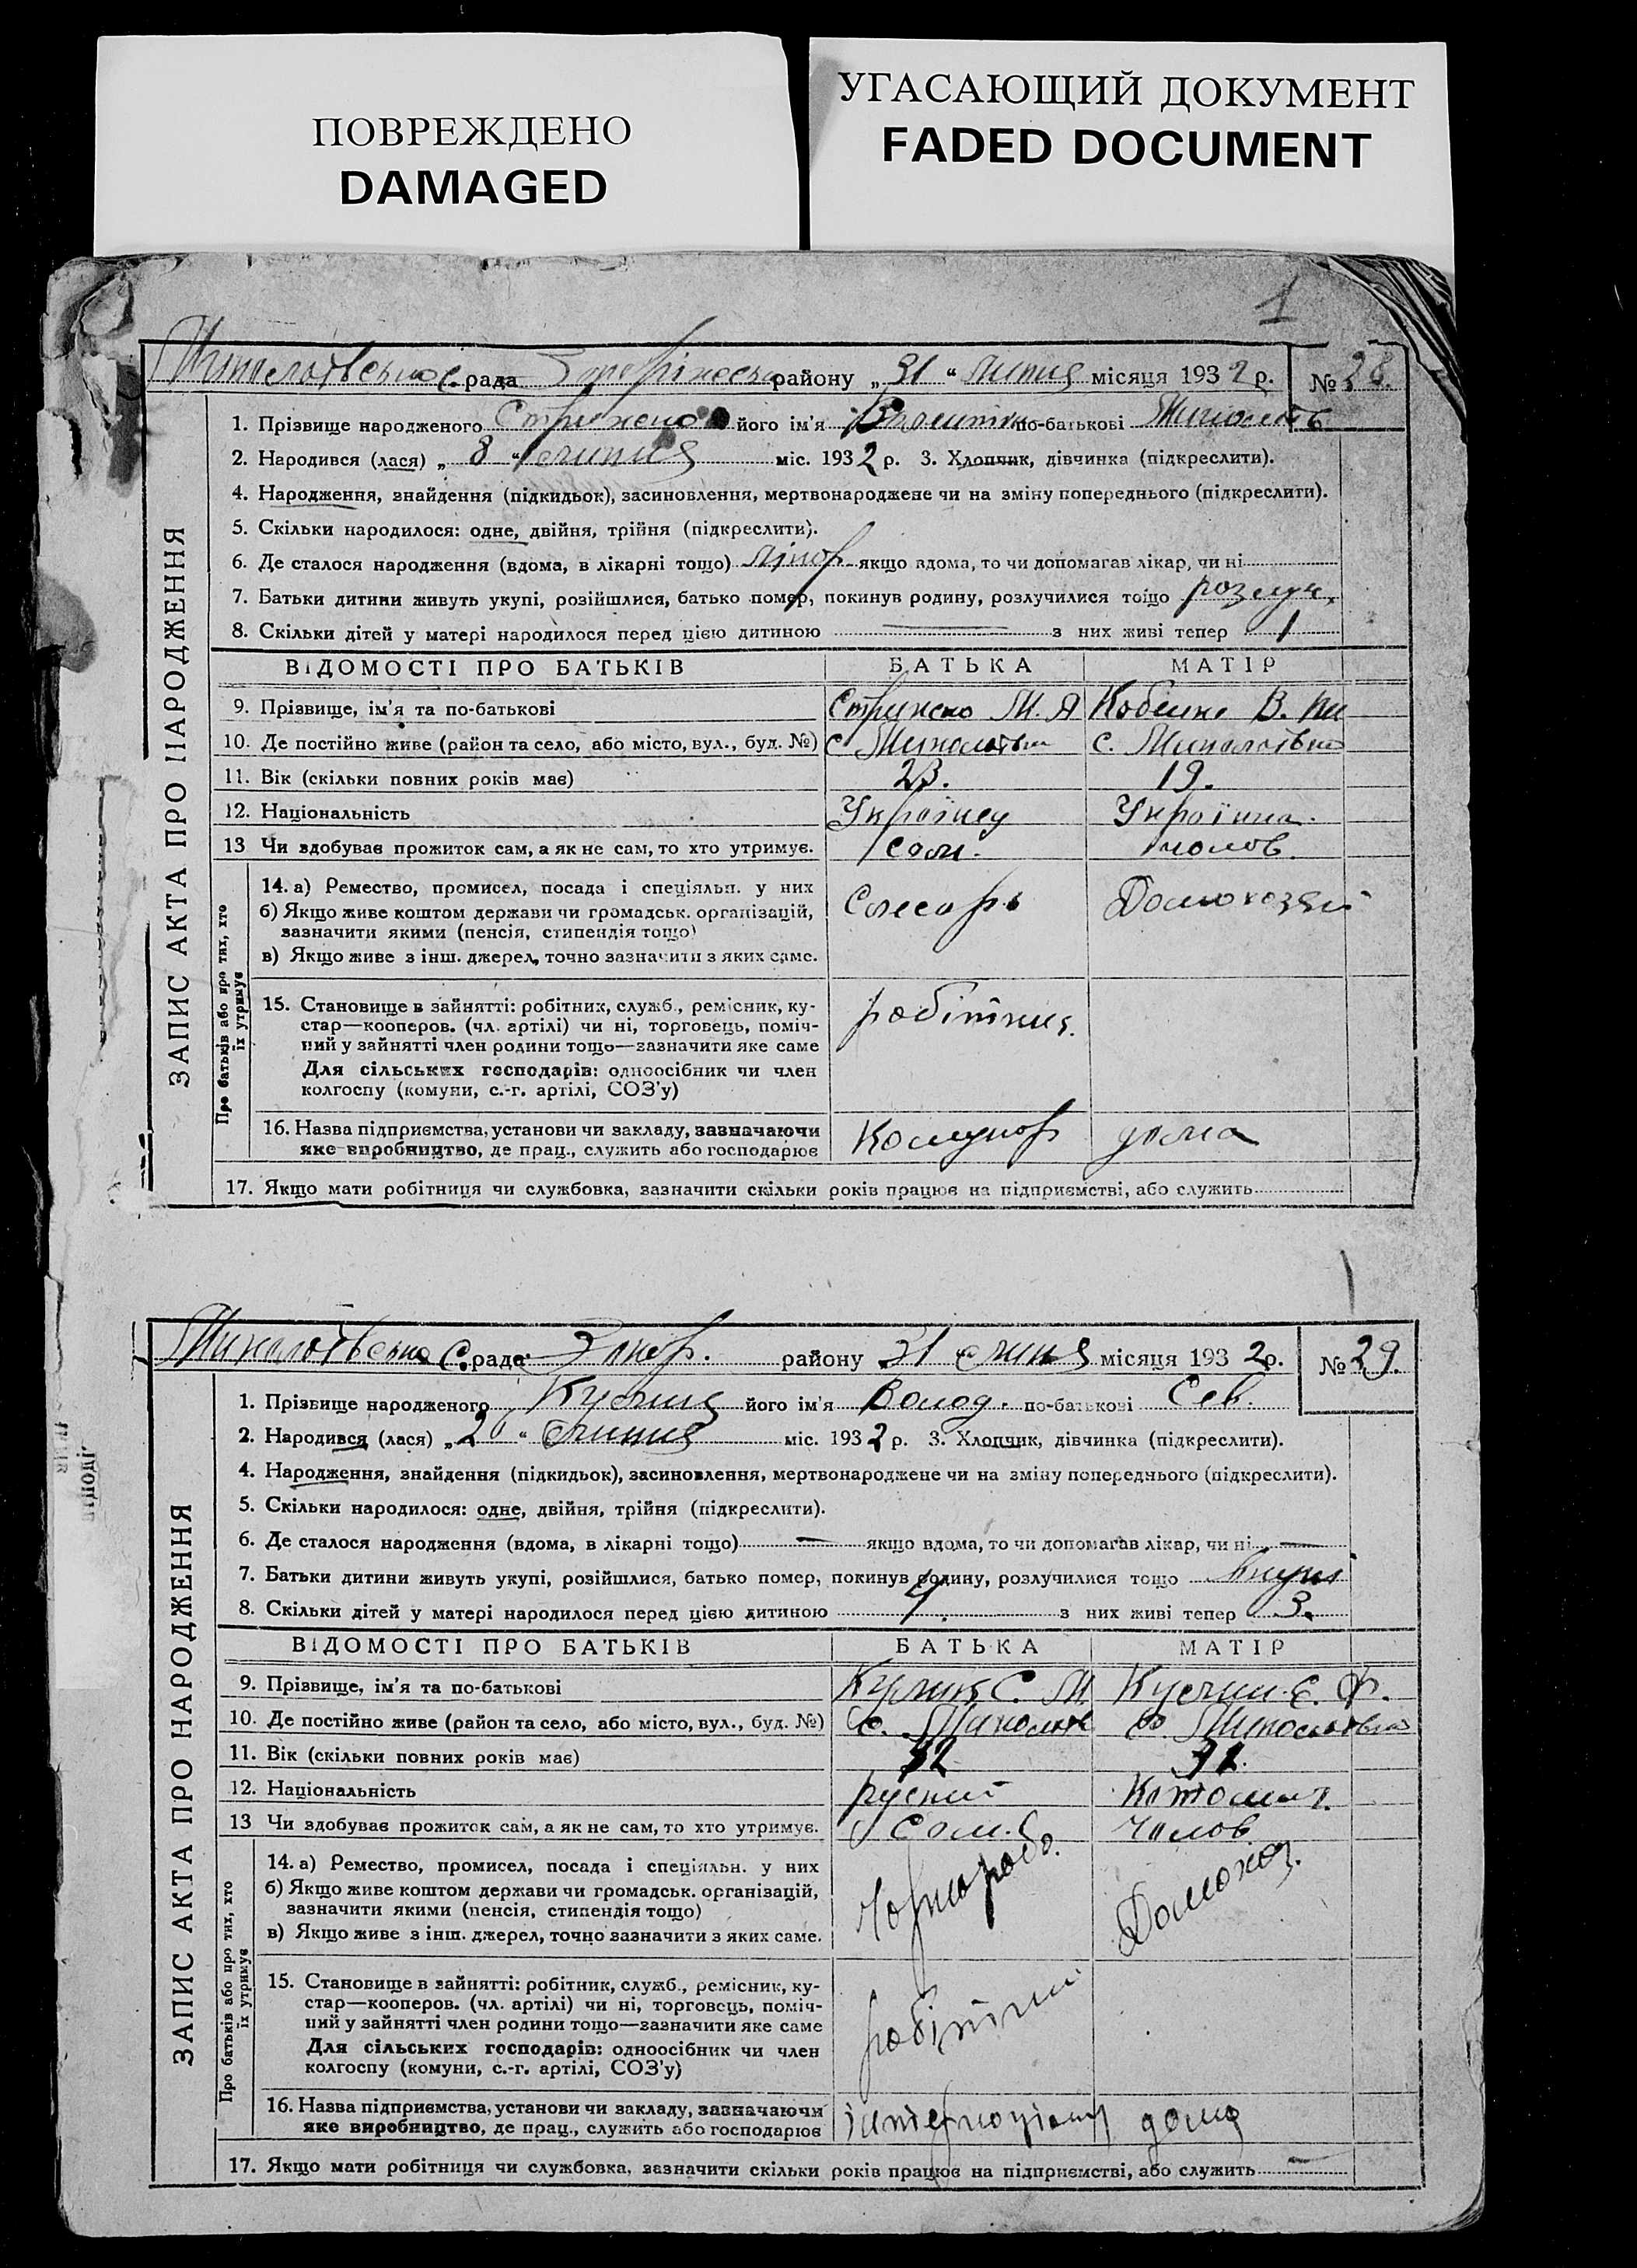 ПОВРЕЖДЕНО
DAMAGED
УГАСАЮЩИЙ ДОКУМЕНТ
FADED DOCUMENT
1
с. рада району „31“ липня місяця 1932 р. № 28.
1. Прізвище народженого його ім'я по-батькові
2. Народився (лася) „8“ липня міс. 1932 р. 3. Хлопчик, дівчинка (підкреслити).
4. Народження, знайдення (підкидьок), засиновлення, мертвонароджене чи на зміну попереднього (підкреслити).
5. Скільки народилося: одне, двійня, трійня (підкреслити).
6. Де сталося народження (вдома, в лікарні тощо) якщо вдома, то чи допомагав лікар, чи ні
7. Батьки дитини живуть укупі, розійшлися, батько помер, покинув родину, розлучилися тощо розлуч.
8. Скільки дітей у матері народилося перед цією дитиною — з них живі тепер 1
ВІДОМОСТІ ПРО БАТЬКІВ БАТЬКА МАТІР
9. Прізвище, ім'я та по-батькові М. Я В.
10. Де постійно живе (район та село, або місто, вул., буд. №) с с.
11. Вік (скільки повних років має) 23. 19.
12. Національність Українец Українка.
13 Чи здобуває прожиток сам, а як не сам, то хто утримує. сам. чолов.
14. а) Ремество, промисел, посада і спеціяльн. у них
б) Якщо живе коштом держави чи громадськ. організацій,
зазначити якими (пенсія, стипендія тощо)
в) Якщо живе з інш. джерел, точно зазначити з яких саме.
Слесарь Домохозяй
15. Становище в зайнятті: робітник, служб., ремісник, ку-
стар—кооперов. (чл. артілі) чи ні, торговець, поміч-
ний у зайнятті член родини тощо—зазначити яке саме
Для сільських господарів: одноосібник чи член
колгоспу (комуни, с.-г. артілі, СОЗ'у)
16. Назва підприємства, установи чи закладу, зазначаючи
яке виробництво, де прац., служить або господарює
Комунар дома
17. Якщо мати робітниця чи службовка, зазначити скільки років працює на підприємстві, або служить
ЗАПИС АКТА ПРО НАРОДЖЕННЯ
Про батьків або про тих, хто
їх утримує
с. рада Запор. району 31 липня місяця 1932 р. № 29.
1. Прізвище народженого його ім'я Волод. по-батькові Сев.
2. Народився (лася) липня міс. 1932 р. 3. Хлопчик, дівчинка (підкреслити).
4. Народження, знайдення (підкидьок), засиновлення, мертвонароджене чи на зміну попереднього (підкреслити).
5. Скільки народилося: одне, двійня, трійня (підкреслити).
6. Де сталося народження (вдома, в лікарні тощо) — якщо вдома, то чи допомагав лікар, чи ні —
7. Батьки дитини живуть укупі, розійшлися, батько помер, покинув родину, розлучилися тощо вкупі
8. Скільки дітей у матері народилося перед цією дитиною 4. з них живі тепер 3.
ВІДОМОСТІ ПРО БАТЬКІВ БАТЬКА МАТІР
9. Прізвище, ім'я та по-батькові С. М. Є. Ф.
10. Де постійно живе (район та село, або місто, вул., буд. №) с. с.
11. Вік (скільки повних років має) 32
12. Національність руский
13 Чи здобуває прожиток сам, а як не сам, то хто утримує. Сам. Чолов
14. а) Ремество, промисел, посада і спеціяльн. у них
б) Якщо живе коштом держави чи громадськ. організацій,
зазначити якими (пенсія, стипендія тощо)
в) Якщо живе з інш. джерел, точно зазначити з яких саме.
Чорнороб. Домохоз.
15. Становище в зайнятті: робітник, служб., ремісник, ку-
стар—кооперов. (чл. артілі) чи ні, торговець, поміч-
ний у зайнятті член родини тощо—зазначити яке саме
Для сільських господарів: одноосібник чи член
колгоспу (комуни, с.-г. артілі, СОЗ'у)
16. Назва підприємства, установи чи закладу, зазначаючи
яке виробництво, де прац., служить або господарює
дома
17. Якщо мати робітниця чи службовка, зазначити скільки років працює на підприємстві, або служить —
ЗАПИС АКТА ПРО НАРОДЖЕННЯ
Про батьків або про тих, хто
їх утримує